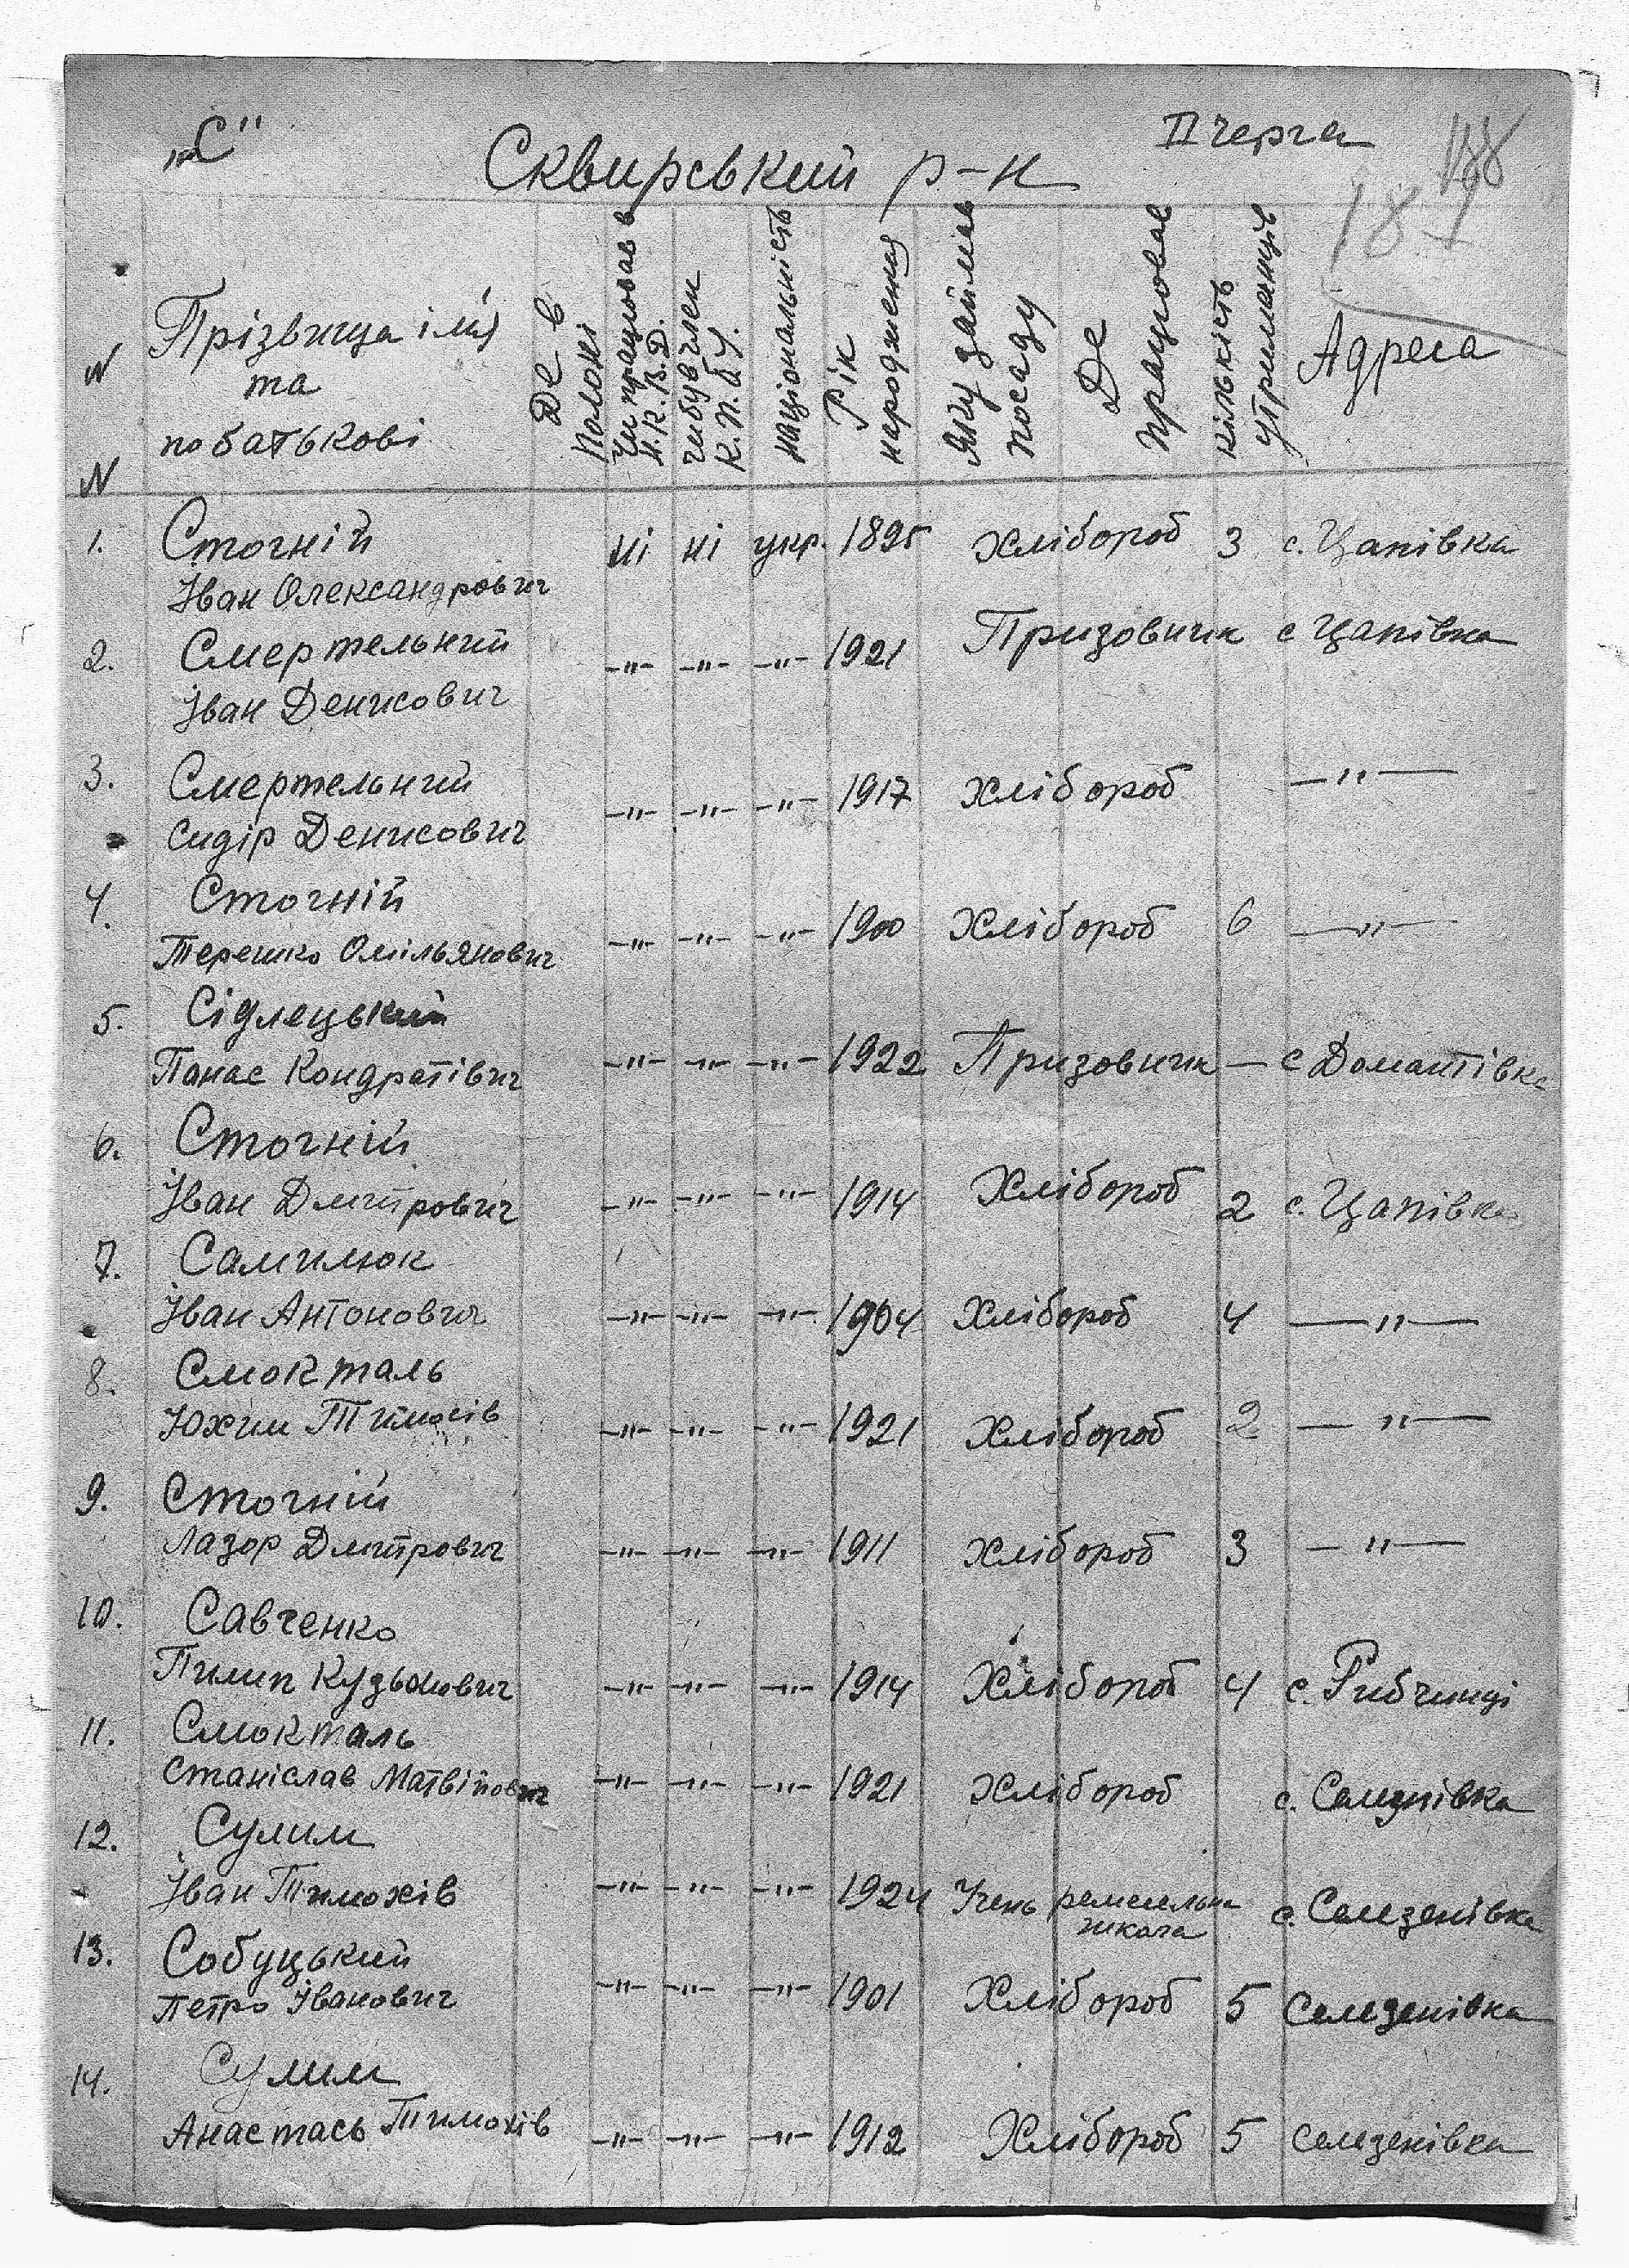 „С" II черга
Сквирський р-н
188
187
N N
Прізвища ім'я
та
по батькові
Де в Полоні
Чи працював в Н.К.В.Д.
чи був член К.П.б.У.
національність
Рік народження
Яку займав посаду
Де працював
кількість утриманців
Адреса
1. Сточній ні ні укр. 1895 Хлібороб 3 с. Цапівка
Іван Олександрович
2. Смертельний –"– –"– –"– 1921 Призовник с Цапівка
Іван Денисович
3. Смертельний –"– –"– –"– 1917 Хлібороб –"–
Сидір Денисович
4. Сточній –"– –"– –"– 1900 Хлібороб 6 –"–
Терешко Омільянович
5. Сідлецький
Панас Кондратівич –"– –"– –"– 1922 Призовник – с Домантівка
6. Сточній
Іван Дмитрович –"– –"– –"– 1914 Хлібороб 2 с. Цапівка
7. Самилюк
Іван Антонович –"– –"– –"– 1904 Хлібороб 4 –"–
8. Смокталь
Юхим –"– –"– –"– 1921 Хлібороб 2 –"–
9. Сточній
Лазор Дмитрович –"– –"– –"– 1911 Хлібороб 3 –"–
10. Савченко
Пилип Кузьмович –"– –"– –"– 1914 Хлібороб 4 с. Рибчинці
11. Смокталь
Станіслав Матвійович –"– –"– –"– 1921 Хлібороб с.
12. Сулим
Іван Тимохів –"– –"– –"– 1924 Учень ремесельна школа с. Селезенівка
13. Собуцький
Петро Іванович –"– –"– –"– 1901 Хлібороб 5 Селезенівка
14. Сулим
Анастась Тимохів –"– –"– –"– 1912 Хлібороб 5 Селезенівка